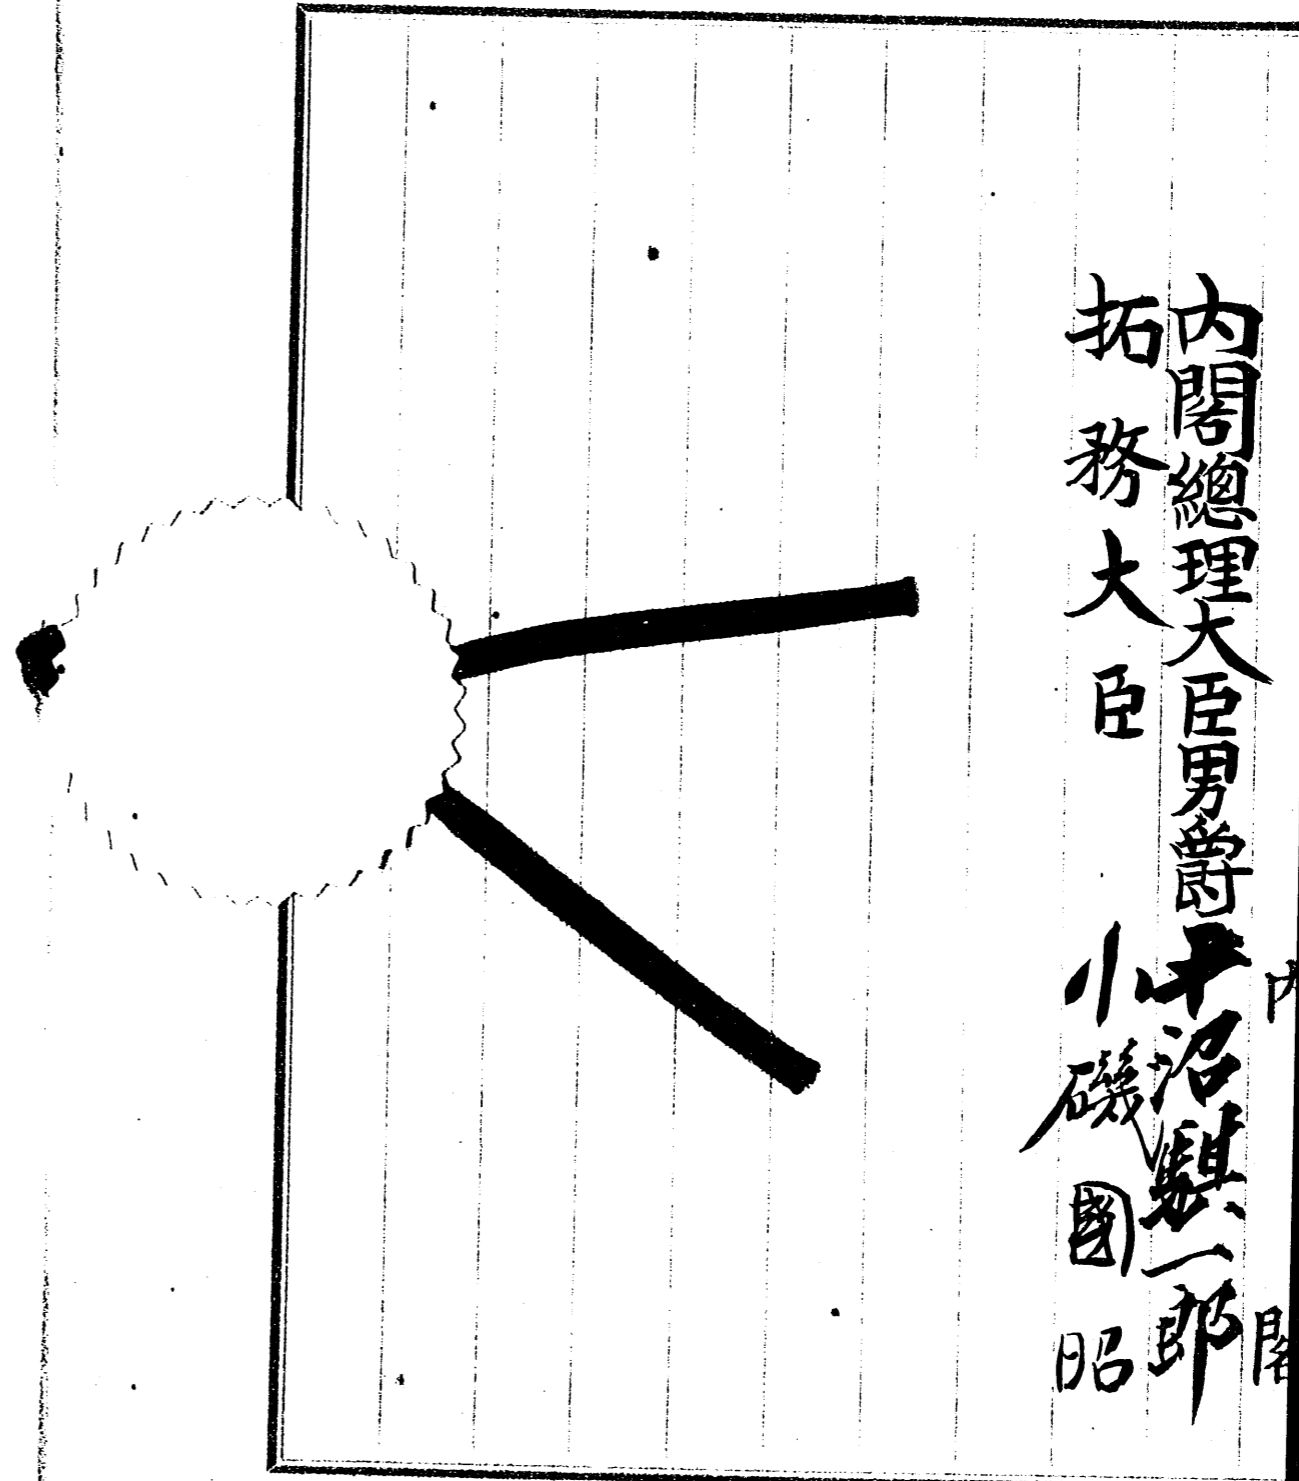 内閣
内閣總理大臣男爵平沼騏一郎
拓務大臣 小磯國昭